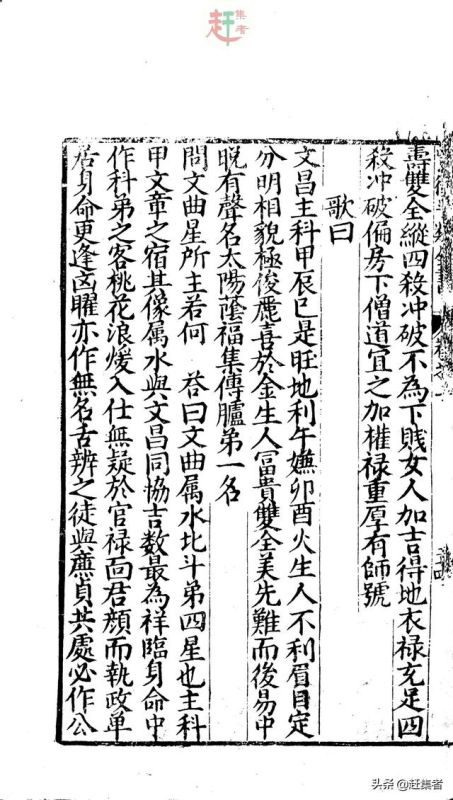 赶集者
壽雙全縱四殺冲破不為下賤女人加吉得地衣禄充足四
殺冲破偏房下僧道宜之加權禄重厚有師號
歌曰
文昌主科甲辰巳是旺地利午嫌卯酉火生人不利眉目定
分明相貌極俊麗喜於金生人富貴雙全美先難而後易中
晚有聲名太陽蔭福集傳臚第一名
問文曲星所主若何 荅曰文曲属水北斗第四星也主科
甲文章之宿其像属水與文昌同協吉数最為祥臨身命中
作科弟之客桃花浪煖入仕無疑於官禄面君顔而執政單
居身命更逢凶曜亦作無名舌辨之徒與廉貞共處必作公
头条 @赶集者